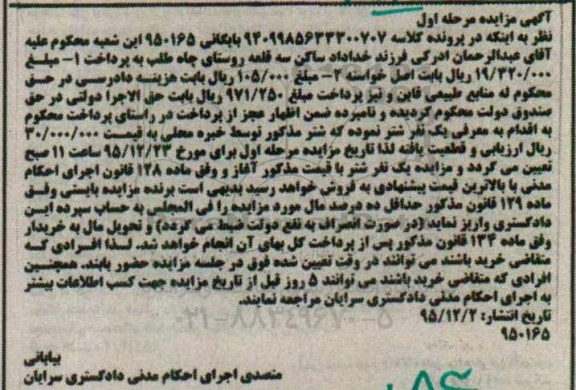 آگهی مزایده مرحله اول
نظر به اینکه در پرونده کلاسه ۹۴۰۹۹۸۵۶۳۳۳۰۰۷۰۷ بایگانی ۹۵۰۱۶۵ این شعبه محکوم علیه
آقای عبدالرحمان ادرکی فرزند خداداد ساکن سه قلعه روستای چاه طلب به پرداخت ۱- مبلغ
۱۹/۳۲۰/۰۰۰ ریال بابت اصل خواسته ۲- مبلغ ۱۰۵/۰۰۰ ریال بابت هزینه دادرسی در حق
محکوم له منابع طبیعی قاین و نیز پرداخت مبلغ ۹۷۱/۲۵۰ ریال بابت حق الاجرا دولتی در حق
صندوق دولت محکوم گردیده و نامبرده ضمن اظهار عجز از پرداخت در راستای پرداخت محکوم
به اقدام به معرفی یک نفر شتر نموده که شتر مذکور توسط خبره محلی به قیمت ۳۰/۰۰۰/۰۰۰
ریال ارزیابی و قطعیت یافته لذا تاریخ مزایده مرحله اول برای مورخ ۹۵/۱۲/۲۳ ساعت ۱۱ صبح
تعیین می گردد و مزایده یک نفر شتر با قیمت مذکور آغاز و وفق ماده ۱۲۸ قانون اجرای احکام
مدنی با بالاترین قیمت پیشنهادی به فروش خواهد رسید بدیهی است برنده مزایده بایستی وفق
ماده ۱۲۹ قانون مذکور حداقل ده درصد مال مورد مزایده را فی المجلس به حساب سپرده این
دادگستری واریز نماید (در صورت انصراف به نفع دولت ضبط می گردد) و تحویل مال به خریدار
وفق ماده ۱۳۴ قانون مذکور پس از پرداخت کل بهای آن انجام خواهد شد. لذا افرادی که
متقاضی خرید باشند می توانند در وقت تعیین شده فوق در جلسه مزایده حضور یابند. همچنین
افرادی که متقاضی خرید باشند می توانند ۵ روز قبل از تاریخ مزایده جهت کسب اطلاعات بیشتر
به اجرای احکام مدنی دادگستری سرایان مراجعه نمایند.
تاریخ انتشار: ۹۵/۱۲/۲
۹۵۰۱۶۵
بیابانی
متصدی اجرای احکام مدنی دادگستری سرایان